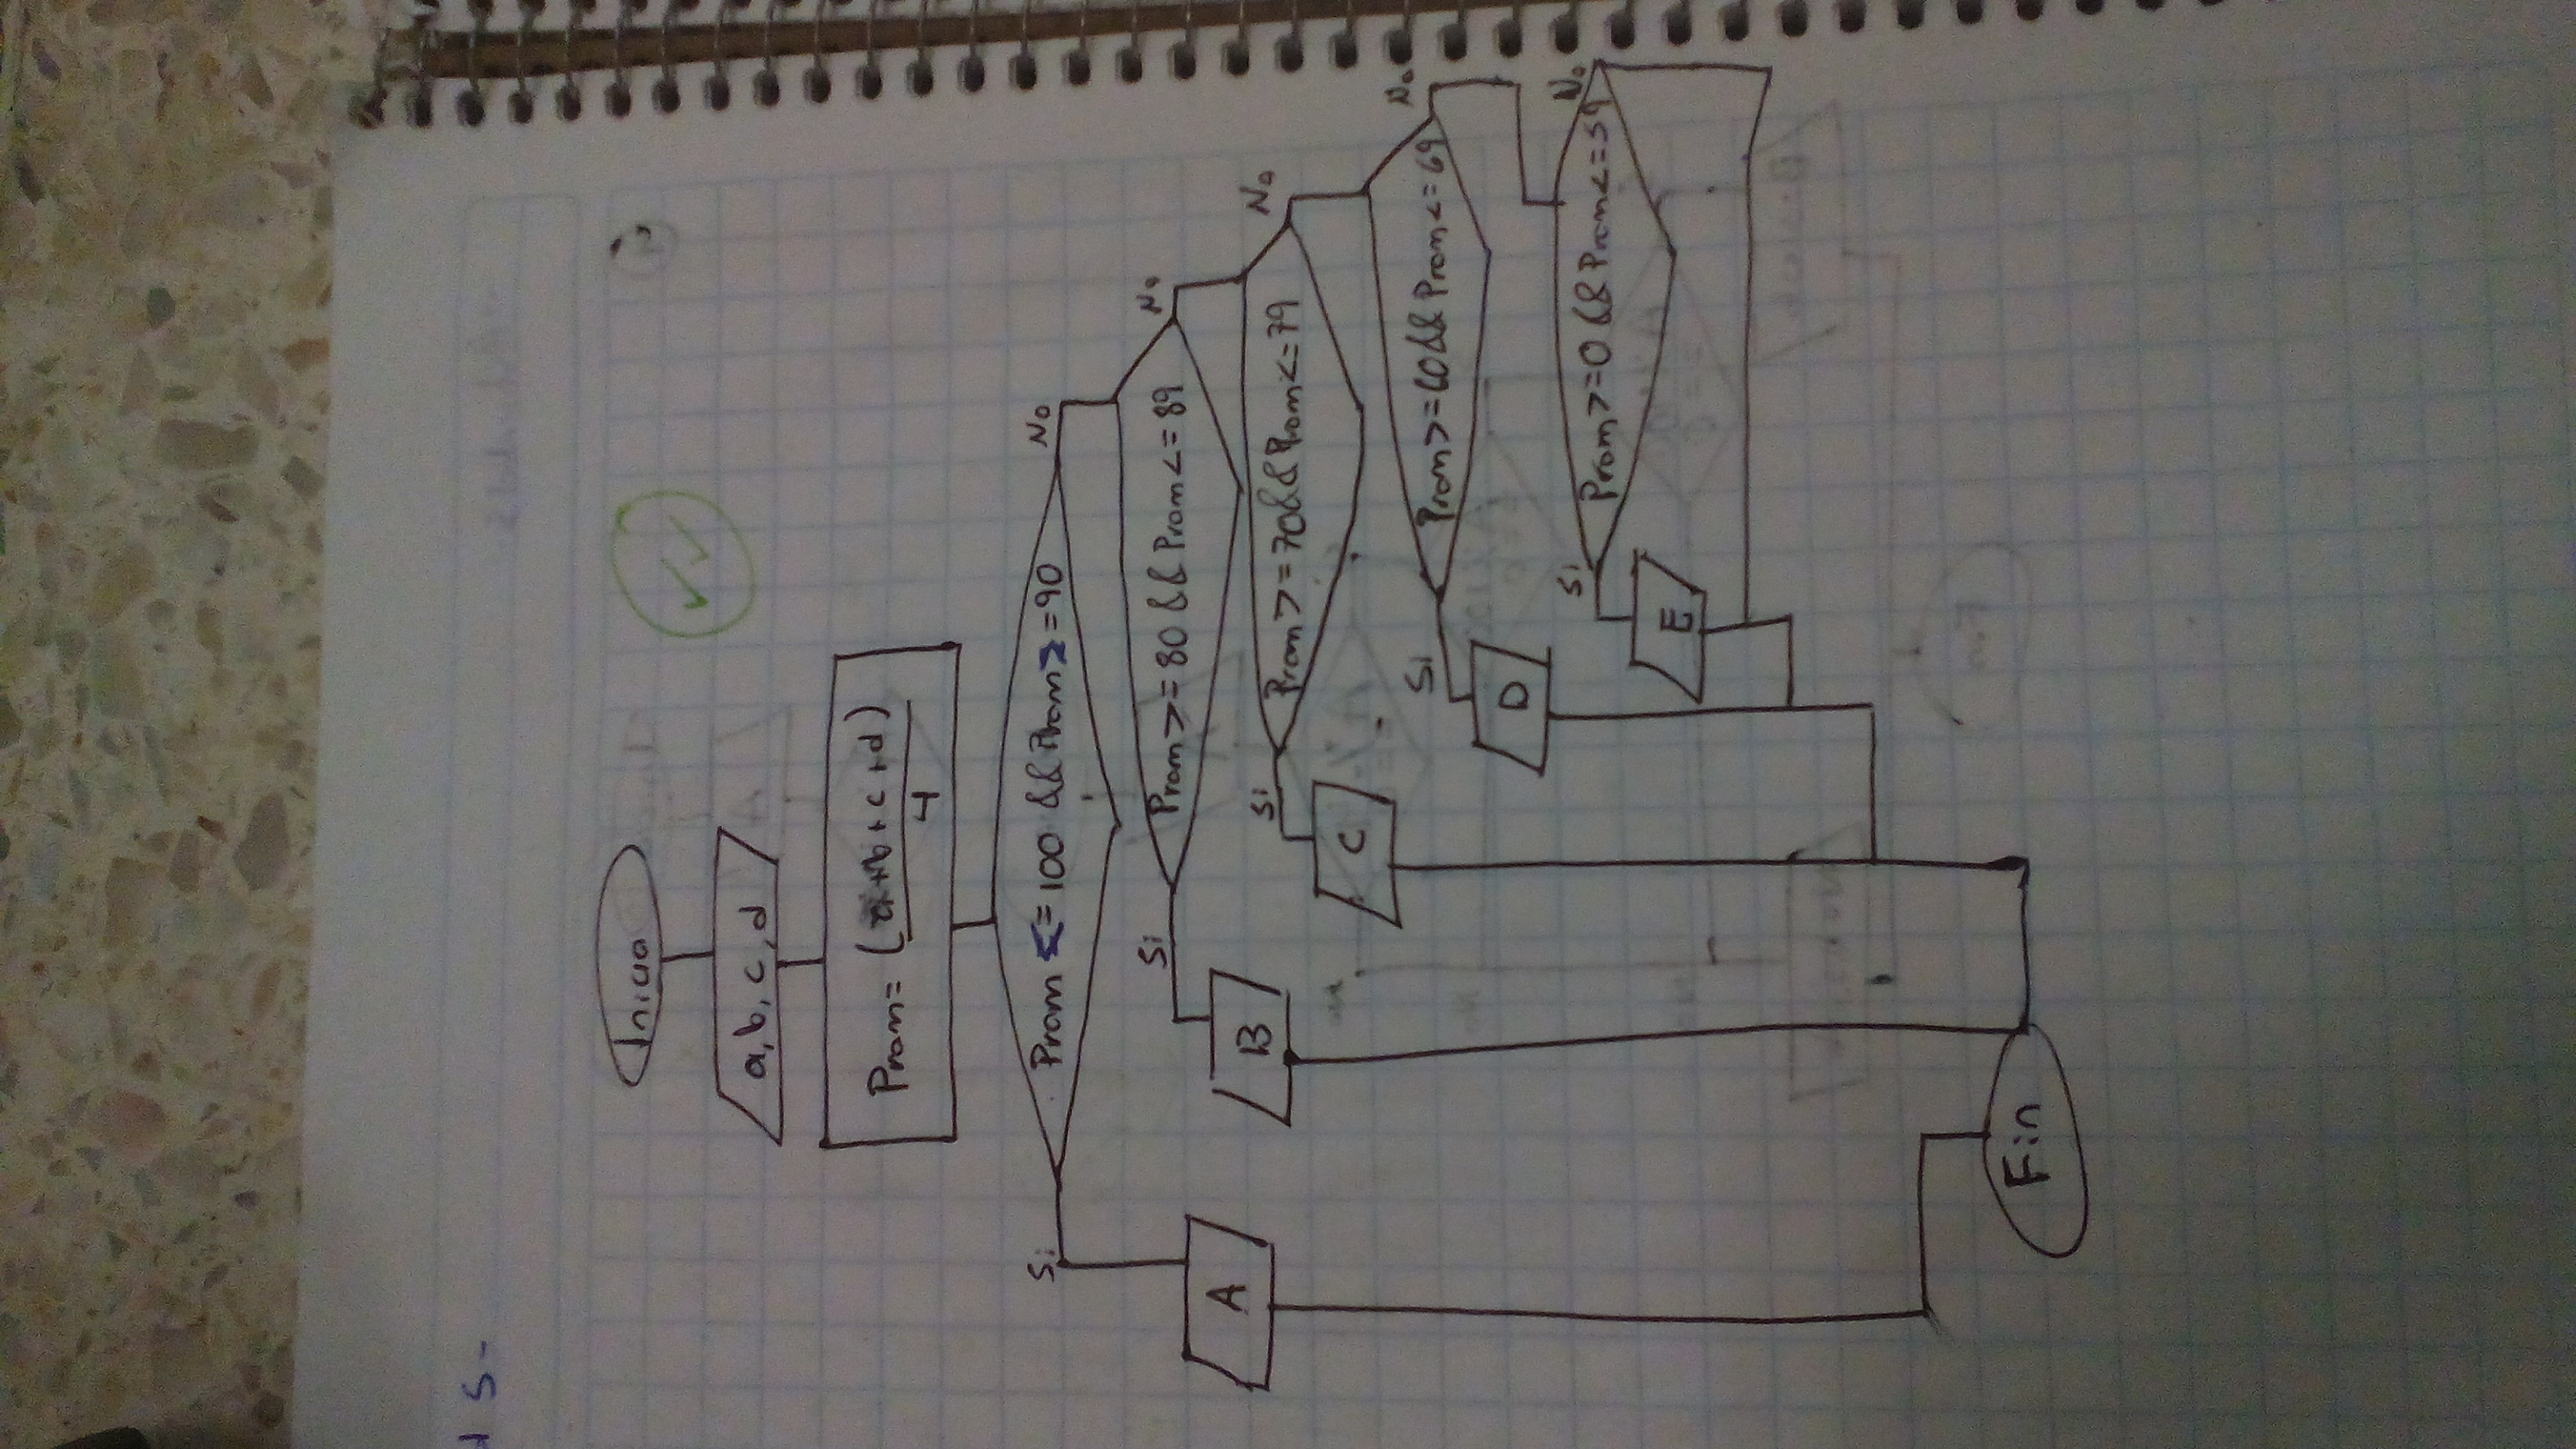 Inicio
a,b,c,d
Prom= (a+b+c+d)
4
Prom <= 100 && Prom >= 90
Si
No
A
Prom >= 80 && Prom <= 89
Si
No
B
Prom >= 70 && Prom <= 79
Si
No
C
Prom >= 60 && Prom <= 69
Si
No
D
Prom >= 0 && Prom <= 59
Si
No
E
Fin